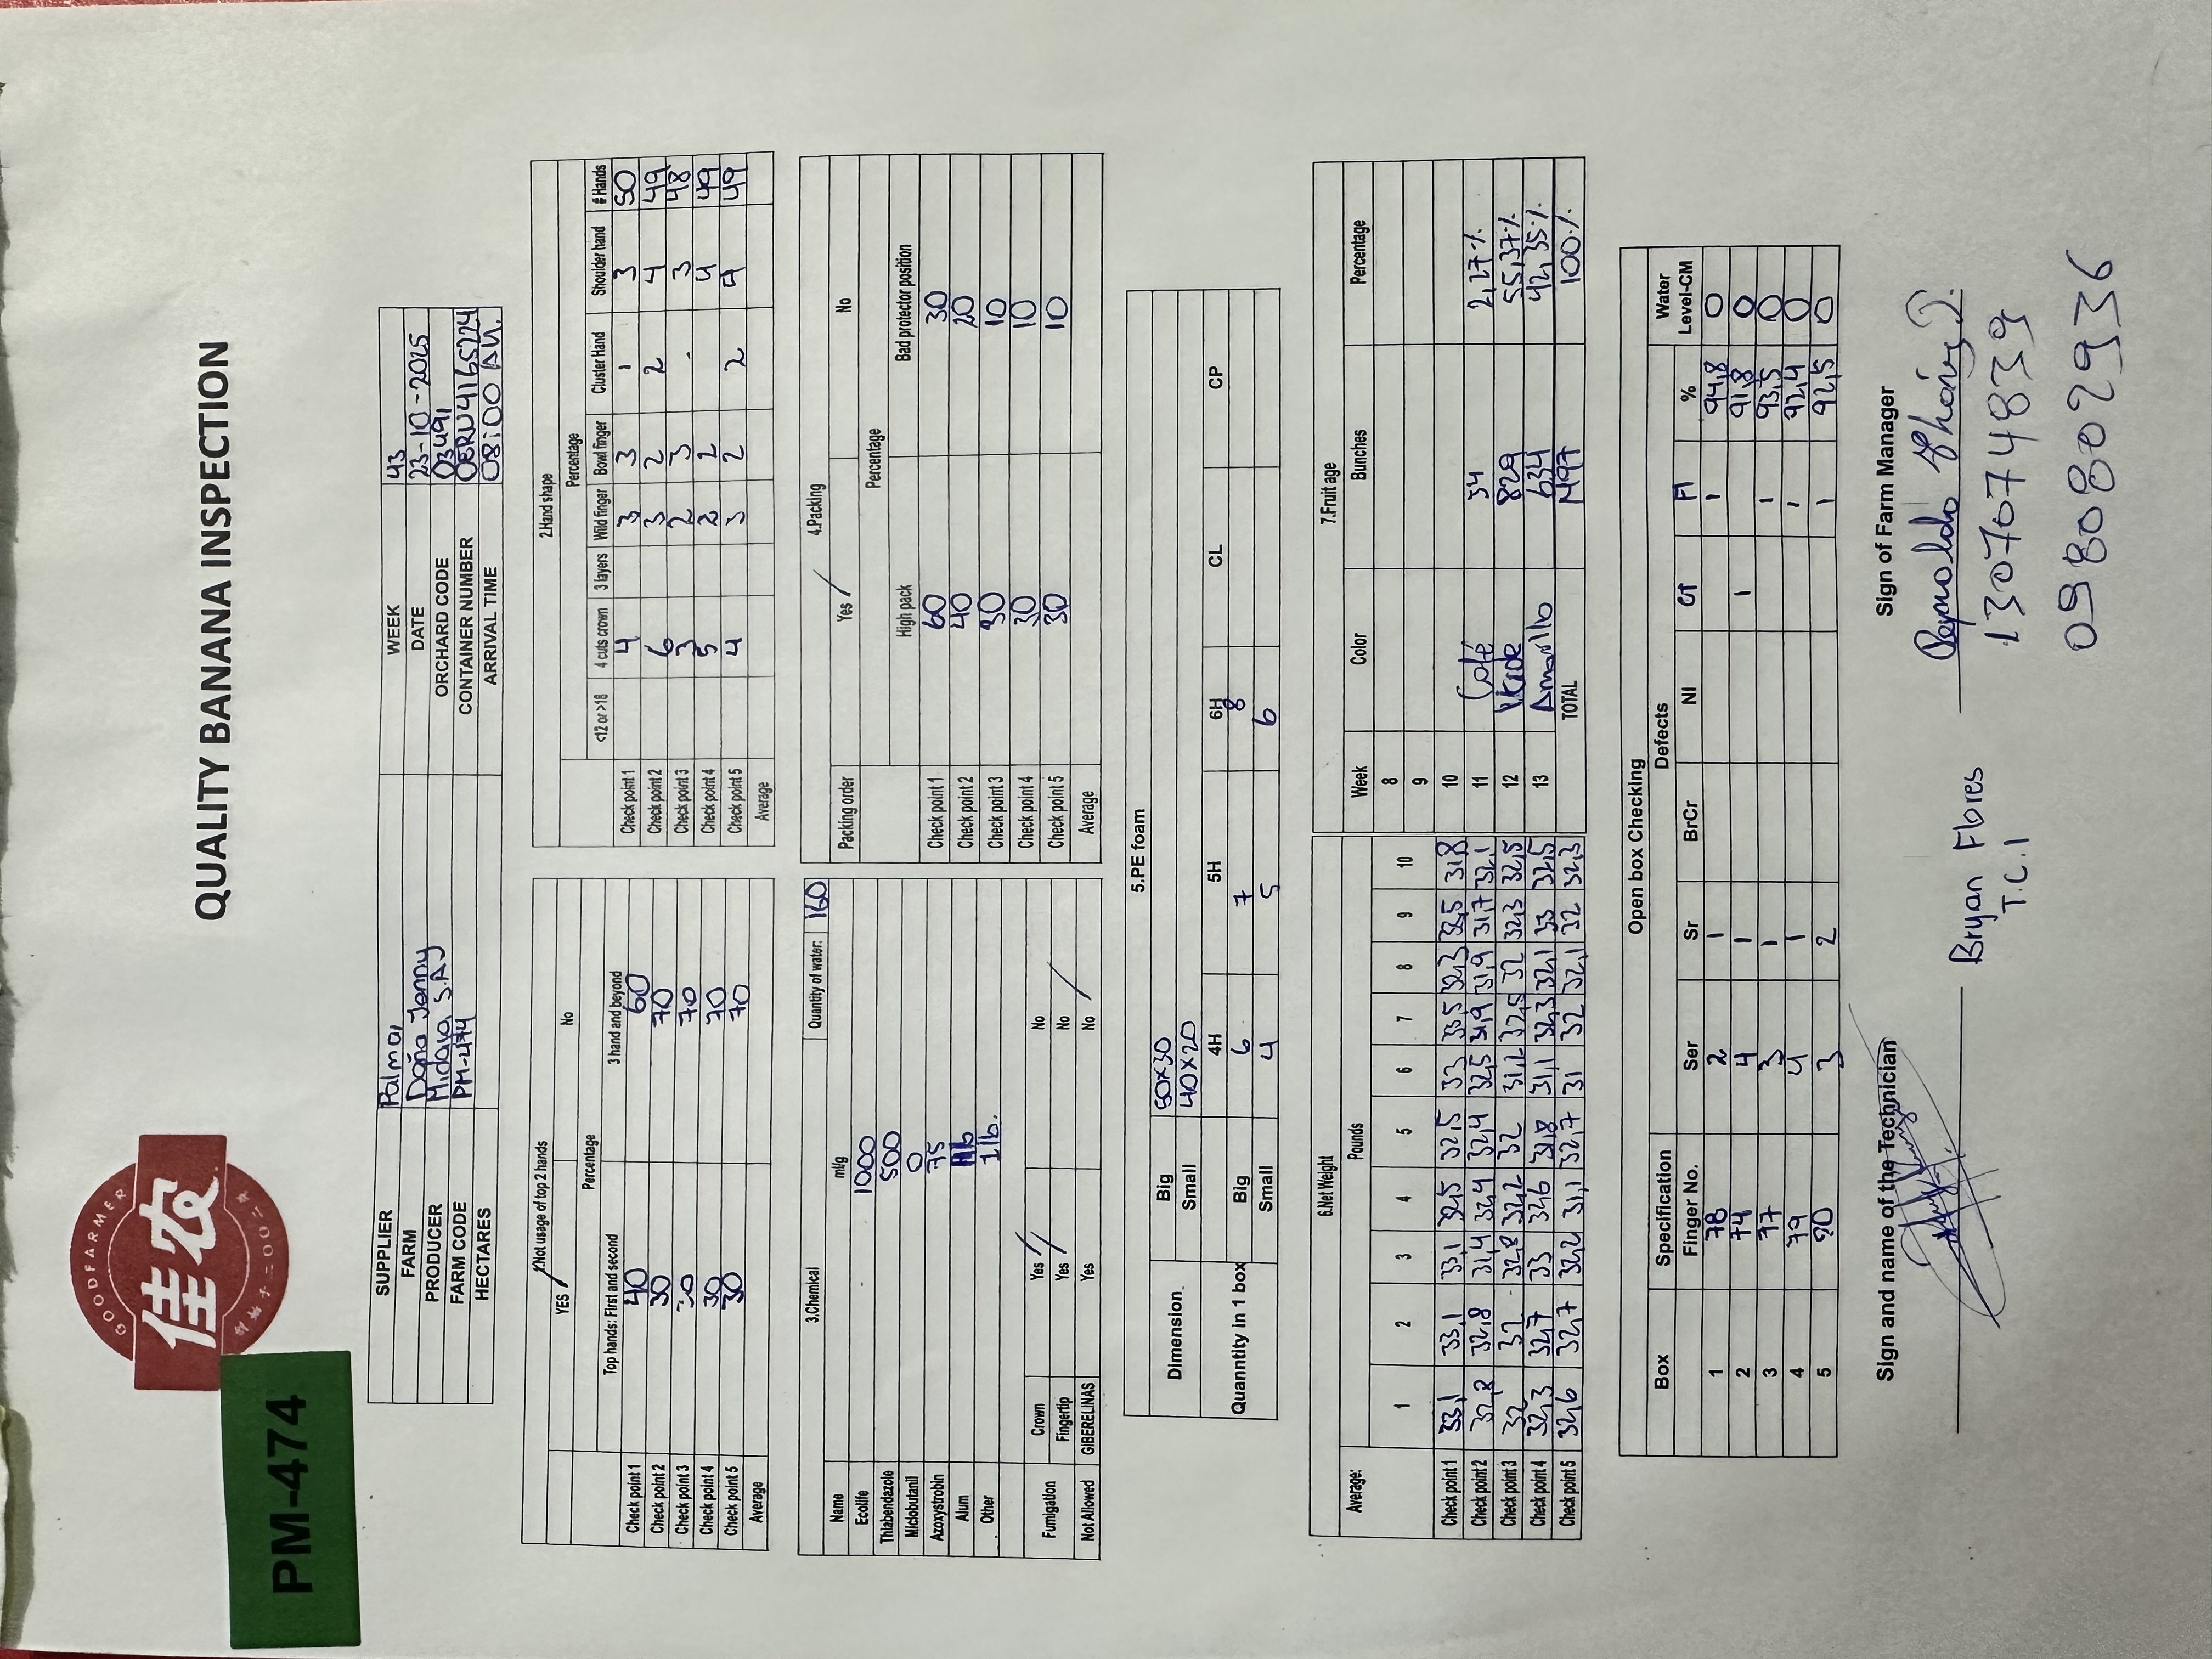 GOODFARMER
佳农
创始于二〇〇二年
PM-474
QUALITY BANANA INSPECTION
SUPPLIER Palmar WEEK 43
FARM Doña Jenny DATE 23-10-2025
PRODUCER S.A. ORCHARD CODE 03491
FARM CODE PM-474 CONTAINER NUMBER OERU4165224
HECTARES ARRIVAL TIME 08:00 AM.
1.Not usage of top 2 hands
YES No
Percentage
Top hands: First and second 3 hand and beyond
Check point 1 40 60
Check point 2 30 70
Check point 3 30 70
Check point 4 30 70
Check point 5 30 70
Average
2.Hand shape
Percentage
<12 or >18 4 cuts crown 3 layers Wild finger Bowl finger Cluster Hand Shoulder hand # Hands
Check point 1 4 3 3 1 3 50
Check point 2 6 3 2 2 4 49
Check point 3 3 2 3 3 48
Check point 4 5 2 2 4 49
Check point 5 4 3 2 2 4 49
Average
3.Chemical Quantity of water: 160
Name ml/g
Ecolife 1000
Thiabendazole 500
Miclobutanil 0
Azoxystrobin 75
Alum 1lb
Other 1lb.
Fumigation Crown Yes No
Fingertip Yes No
Not Allowed GIBERELINAS Yes No
4.Packing
Packing order Yes No
Percentage
High pack Bad protector position
Check point 1 60 30
Check point 2 40 20
Check point 3 30 10
Check point 4 30 10
Check point 5 30 10
Average
5.PE foam
Dimension Big 50x30
Small 40x20
4H 5H 6H CL CP
Quanntity in 1 box Big 6 7 8
Small 4 5 6
6.Net Weight
Average: Pounds
1 2 3 4 5 6 7 8 9 10
Check point 1 33,1 33,1 33,1 32,5 32,5 33 33,5 32,3 32,5 31,8
Check point 2 32,8 32,8 31,4 32,4 32,4 32,5 31,9 31,9 31,7 32,1
Check point 3 32 32 32,8 32,2 32 31,2 32,5 32 32,3 32,5
Check point 4 32,3 32,7 33 32,6 31,8 31,1 32,3 32,1 33 32,5
Check point 5 32,6 32,7 32,2 31,1 32,7 31 32 32,1 32 32,3
7.Fruit age
Week Color Bunches Percentage
8
9
10
11 Café 34 2,27%
12 Verde 829 55,37%
13 Amarillo 634 42,35%
TOTAL 1497 100%
Open box Checking
Box Specification Defects Water
Finger No. Ser Sr BrCr NI CT FI % Level-CM
1 78 2 1 1 94,8 0
2 74 4 1 1 91,8 0
3 77 3 1 1 93,5 0
4 79 4 1 1 92,4 0
5 80 3 2 1 92,5 0
Sign and name of the Technician Sign of Farm Manager
Bryan Flores
T.C.I
Reynaldo
1307074839
0980802936